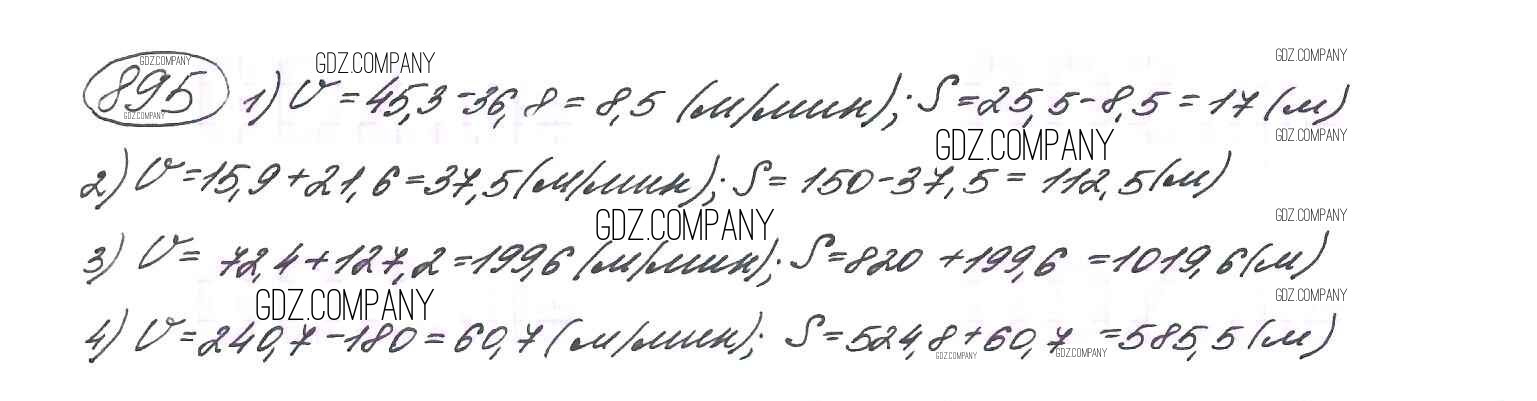 GDZ.COMPANY GDZ.COMPANY GDZ.COMPANY
895 1) V = 45,3 - 36,8 = 8,5 (м/мин); S = 25,5 - 8,5 = 17 (м)
GDZ.COMPANY GDZ.COMPANY GDZ.COMPANY
2) V = 15,9 + 21,6 = 37,5 (м/мин); S = 150 - 37,5 = 112,5 (м)
GDZ.COMPANY GDZ.COMPANY
3) V = 72,4 + 127,2 = 199,6 (м/мин); S = 820 + 199,6 = 1019,6 (м)
GDZ.COMPANY GDZ.COMPANY
4) V = 240,7 - 180 = 60,7 (м/мин); S = 524,8 + 60,7 = 585,5 (м)
GDZ.COMPANY GDZ.COMPANY